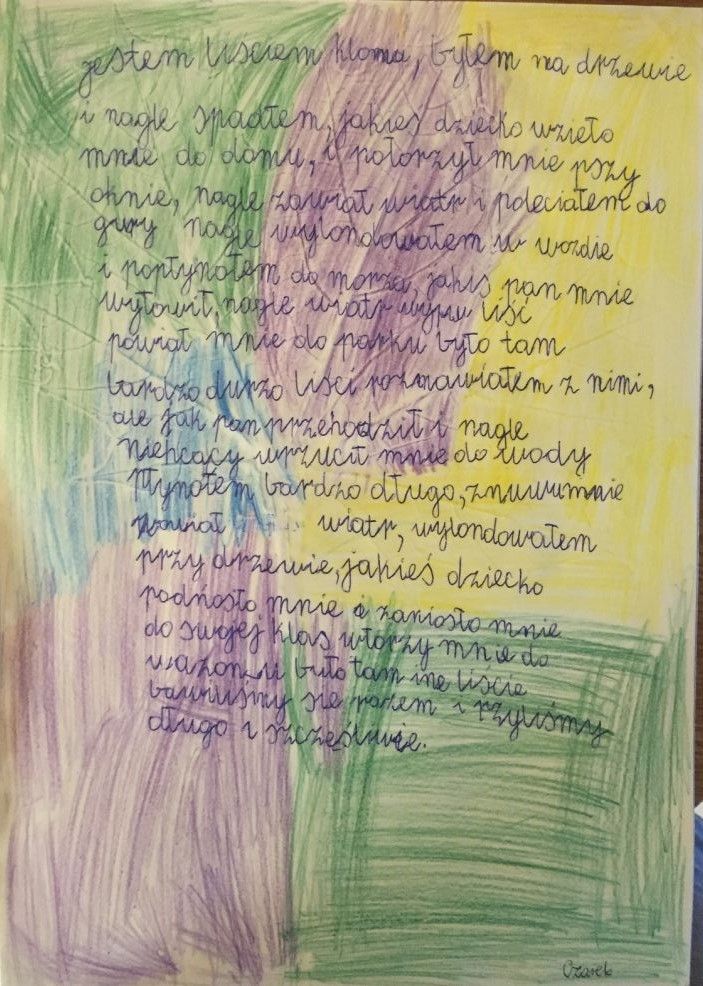 jestem liściem klonu, byłem na drzewie
i nagle spadłem, jakieś dziecko wzieło
mnie do domu, i połorzył mnie pszy
oknie, nagle zawiał wiatr i poleciałem do
gury nagle wylondowałem w wodzie
i popłynołem do morza, jakiś pan mnie
wyłowił, nagle wiatr liść
powiał mnie do parku było tam
bardzo durzo liści rozmawiałem z nimi,
ale jak pan przehodził i nagle
niehcący wrzucił mnie do wody
Płynołem bardzo długo, znuwumnie
powiał wiatr, wylondowałem
przy drzewie, jakieś dziecko
podńosło mnie i zaniosło mnie
do swojej klas włorzy mnie do
wazonu buło tam ine liście
bawiliśmy sie razem i rzyliśmy
długo i szczęśliwie.
Czarek